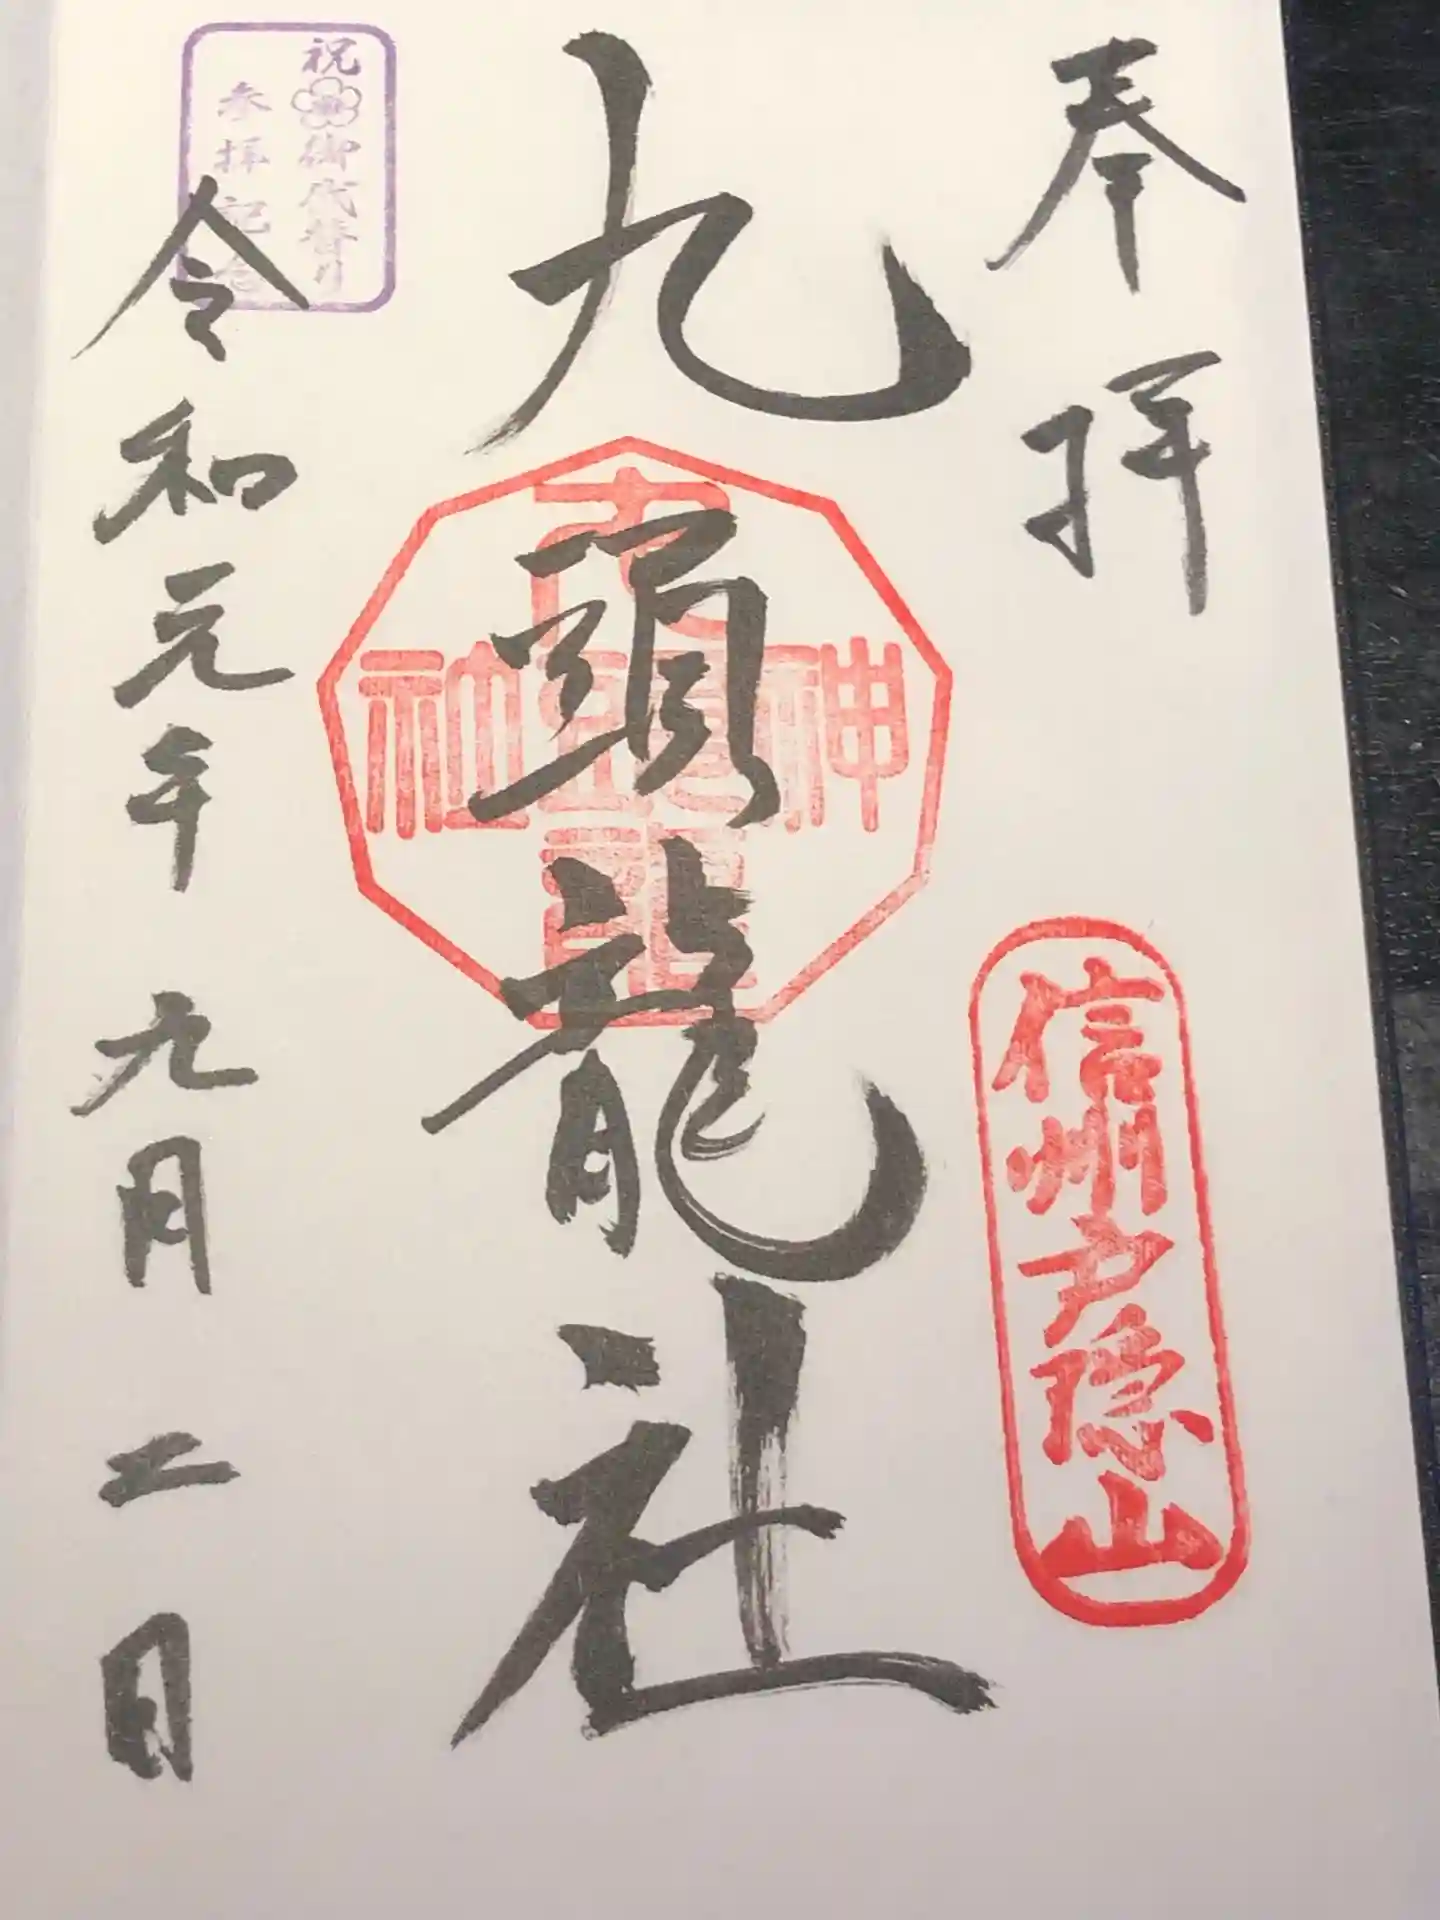 奉拝
信州戸隠山
九頭龍社
九頭龍
神社
祝御代替り
参拝記念
令和元年九月二日